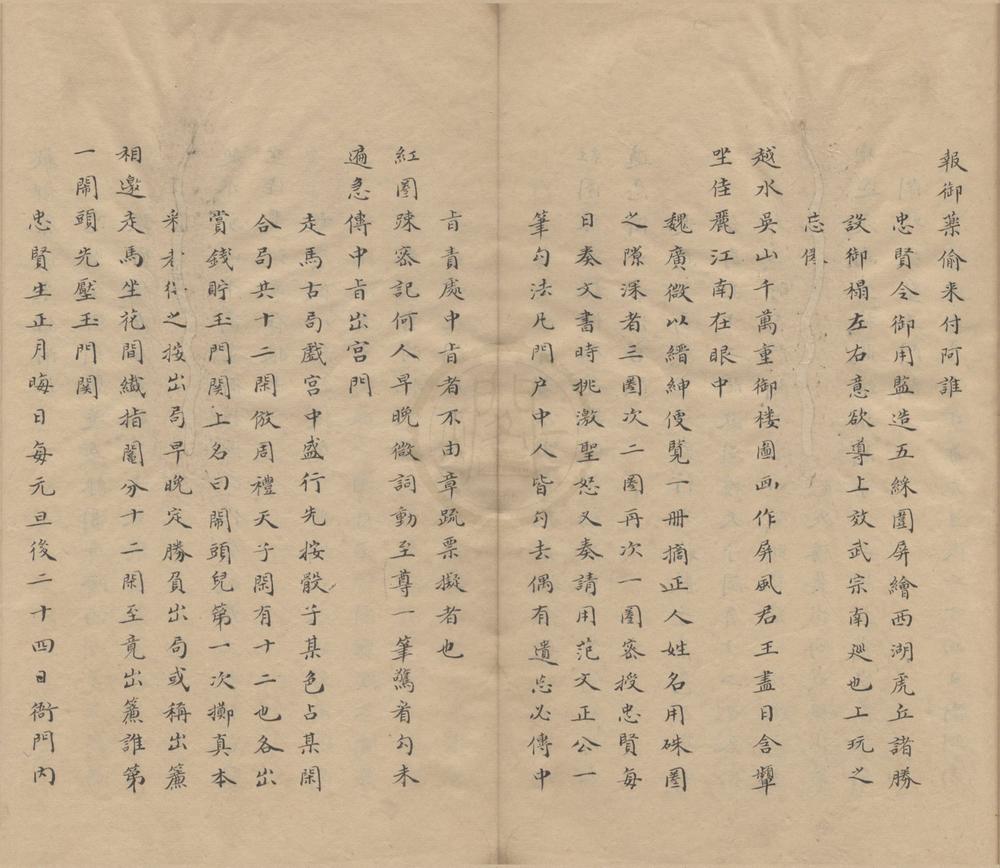 報御藥偷来付阿誰
忠賢令御用監造五綵圍屏繪西湖虎丘諸勝
設御榻左右意欲導上放武宗南廵也上玩之
忘倦
越水吳山千萬重御楼圖画作屏風君王盡日含顰
坐佳麗江南在眼中
魏廣微以縉紳便覽一册摘正人姓名用硃圏
之隙深者三圏次二圏再次一圏密授忠賢每
日奏文書時挑激聖怒又奏請用范文正公一
筆勾法凡門户中人皆勾去偶有遺忘必傳中
㫖責處中㫖者不由章疏票擬者也
紅圏疎密記何人早晚微詞動至尊一筆驚看勾未
遍急傳中㫖出宫門
走馬古局戲宫中盛行先按骰子某色占某閑
合局共十二閑倣周禮天子閑有十二也各出
賞錢貯玉門関上名曰鬧頭兒第一次擲真本
釆者得之按出局早晚定勝負出局或稱出簾
相邀走馬坐花間纎指鬮分十二閑至竟出簾誰第
一鬧頭先壓玉門関
忠賢生正月晦日每元旦後二十四日衙門内